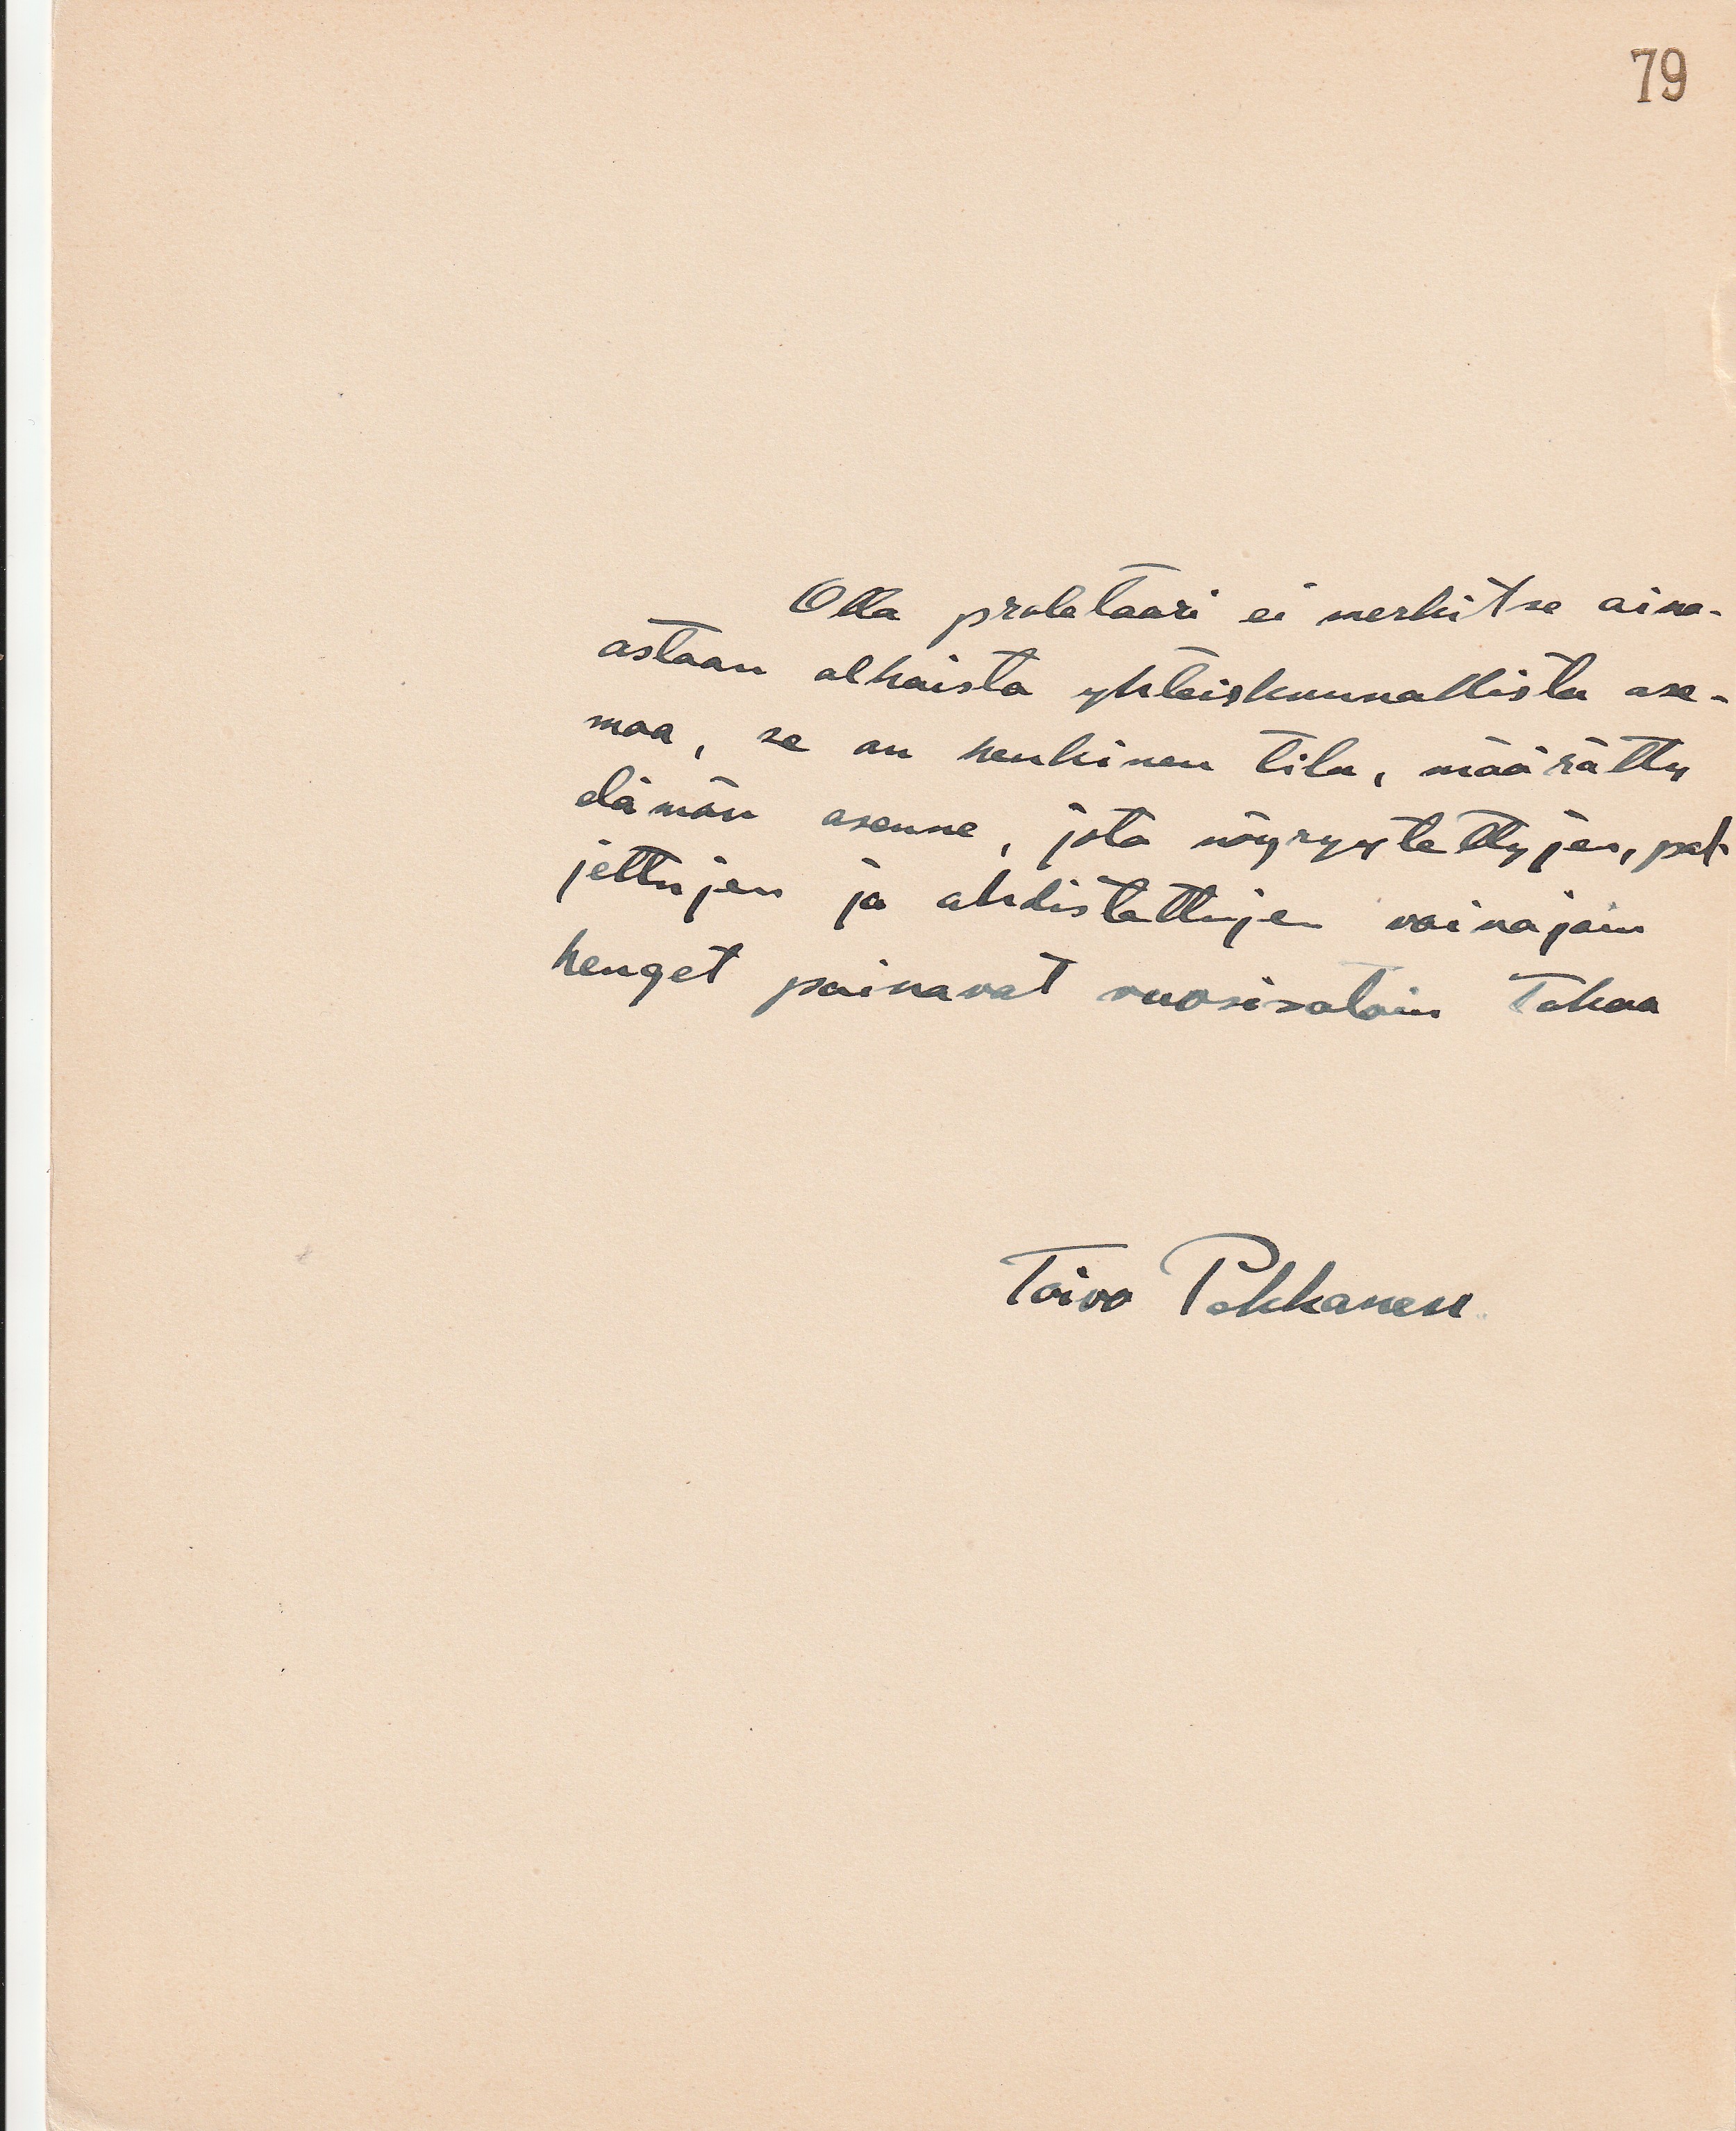 79
Olla proletaari ei merkitse aino-
astaan alhaista yhteiskunnallista ase-
maa, se on henkinen tila, määrätty
elämän asenne, jota nöyryytettyjen, pol-
jettujen ja ahdistettujen vainajain
henget painavat vuosisatain takaa
Toivo Pekkanen